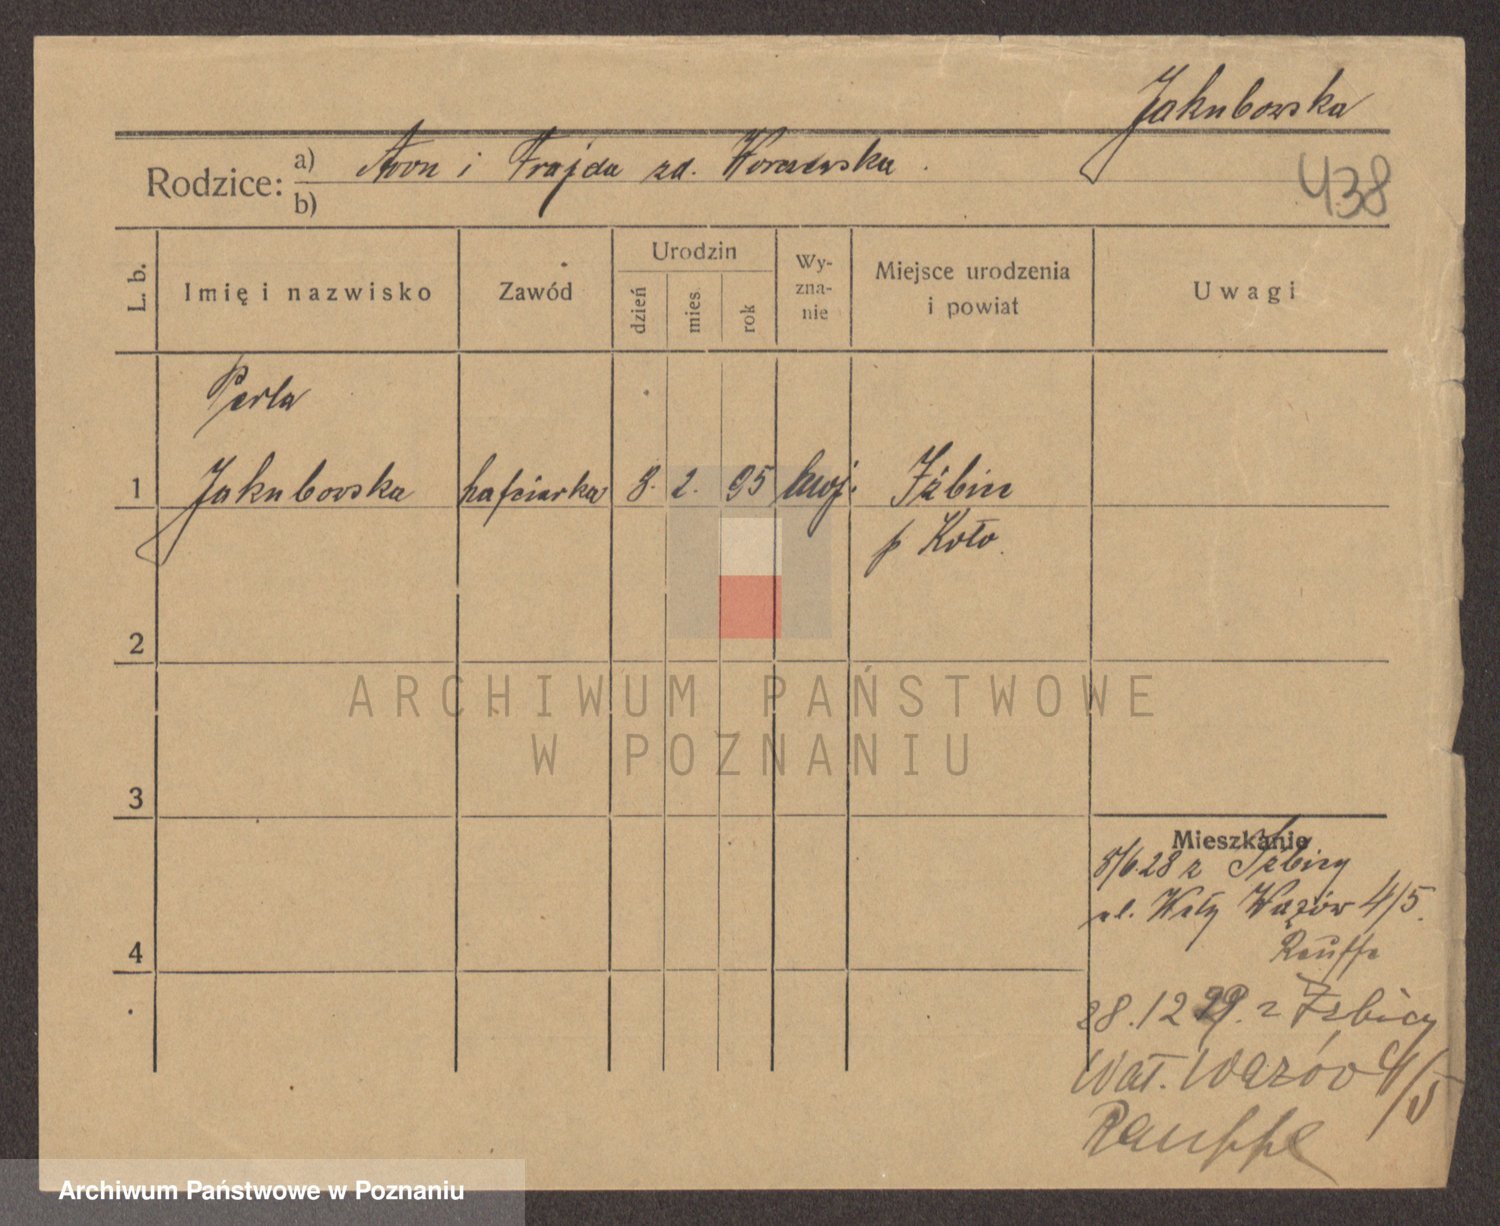 Jakubowska
438
Rodzice: a) Aron i Frajda zd.
b)
L. b. Imię i nazwisko Zawód Urodzin dzień mies. rok Wy-zna-nie Miejsce urodzenia i powiat Uwagi
Perla
1 Jakubowska hafciarka 8. 2. 95 Izbica
p Koło
2
ARCHIWUM PAŃSTWOWE
W POZNANIU
3
Mieszkanie
5/6.28 z Izbicy
ul. Wały Wazów 4/5.
Rauppe
4
28.12 29. z Izbicy
Wał. Wazów 4/5
Rauppe
Archiwum Państwowe w Poznaniu